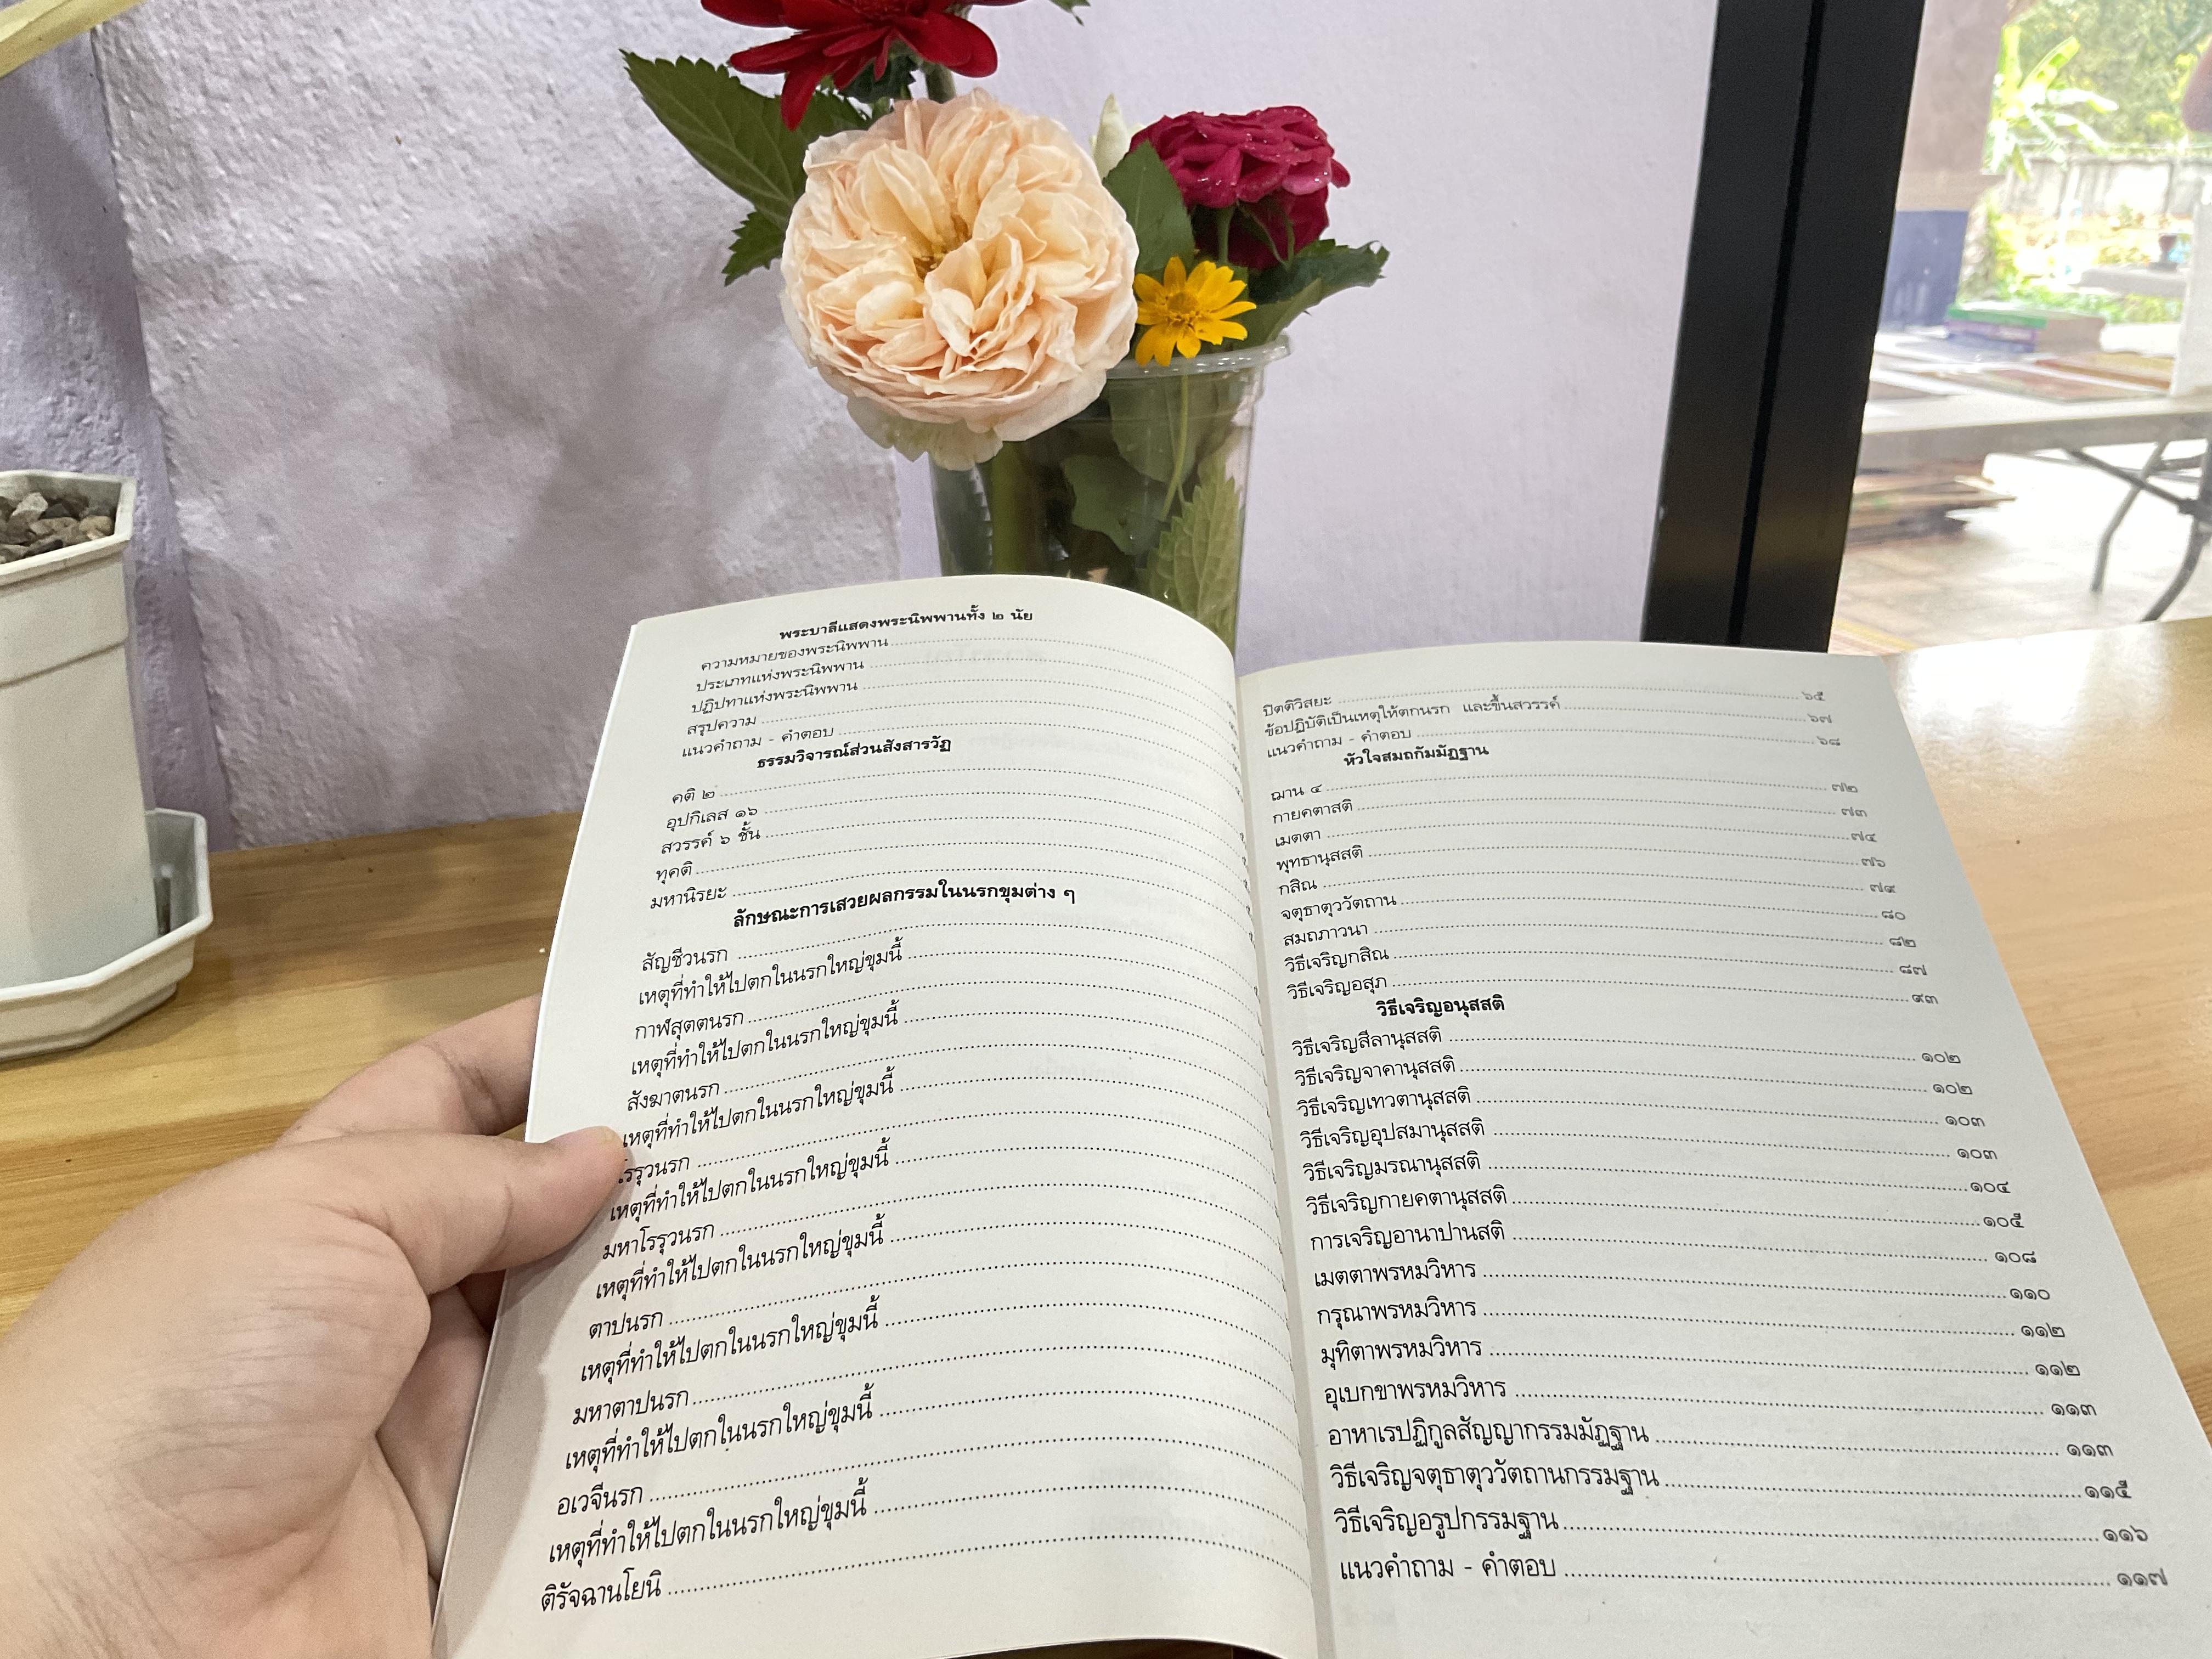 พระบาลีแสดงพระนิพพานทั้ง ๒ นัย
ความหมายของพระนิพพาน
ประเภทแห่งพระนิพพาน
ปฏิปทาแห่งพระนิพพาน
สรุปความ
แนวคำถาม - คำตอบ
ธรรมวิจารณ์ส่วนสังสารวัฏ
คติ ๒
อุปกิเลส ๑๖
สวรรค์ ๖ ชั้น
ทุคติ
มหานิรยะ
ลักษณะการเสวยผลกรรมในนรกขุมต่าง ๆ
สัญชีวนรก
เหตุที่ทำให้ไปตกในนรกใหญ่ขุมนี้
กาฬสุตตนรก
เหตุที่ทำให้ไปตกในนรกใหญ่ขุมนี้
สังฆาตนรก
เหตุที่ทำให้ไปตกในนรกใหญ่ขุมนี้
โรรุวนรก
เหตุที่ทำให้ไปตกในนรกใหญ่ขุมนี้
มหาโรรุวนรก
เหตุที่ทำให้ไปตกในนรกใหญ่ขุมนี้
ตาปนรก
เหตุที่ทำให้ไปตกในนรกใหญ่ขุมนี้
มหาตาปนรก
เหตุที่ทำให้ไปตกในนรกใหญ่ขุมนี้
อเวจีนรก
เหตุที่ทำให้ไปตกในนรกใหญ่ขุมนี้
ติรัจฉานโยนิ
ปิตติวิสยะ ๖๕
ข้อปฏิบัติเป็นเหตุให้ตกนรก และขึ้นสวรรค์ ๖๗
แนวคำถาม - คำตอบ ๖๘
หัวใจสมถกัมมัฏฐาน
ฌาน ๔ ๗๒
กายคตาสติ ๗๓
เมตตา ๗๔
พุทธานุสสติ ๗๖
กสิณ ๗๙
จตุธาตุววัตถาน ๘๐
สมถภาวนา ๘๒
วิธีเจริญกสิณ ๘๗
วิธีเจริญอสุภ ๙๓
วิธีเจริญอนุสสติ
วิธีเจริญสีลานุสสติ ๑๐๒
วิธีเจริญจาคานุสสติ ๑๐๒
วิธีเจริญเทวตานุสสติ ๑๐๓
วิธีเจริญอุปสมานุสสติ ๑๐๓
วิธีเจริญมรณานุสสติ ๑๐๔
วิธีเจริญกายคตานุสสติ ๑๐๕
การเจริญอานาปานสติ ๑๐๘
เมตตาพรหมวิหาร ๑๑๐
กรุณาพรหมวิหาร ๑๑๒
มุทิตาพรหมวิหาร ๑๑๒
อุเบกขาพรหมวิหาร ๑๑๓
อาหาเรปฏิกูลสัญญากรรมมัฏฐาน ๑๑๓
วิธีเจริญจตุธาตุววัตถานกรรมฐาน ๑๑๕
วิธีเจริญอรูปกรรมฐาน ๑๑๖
แนวคำถาม - คำตอบ ๑๑๗